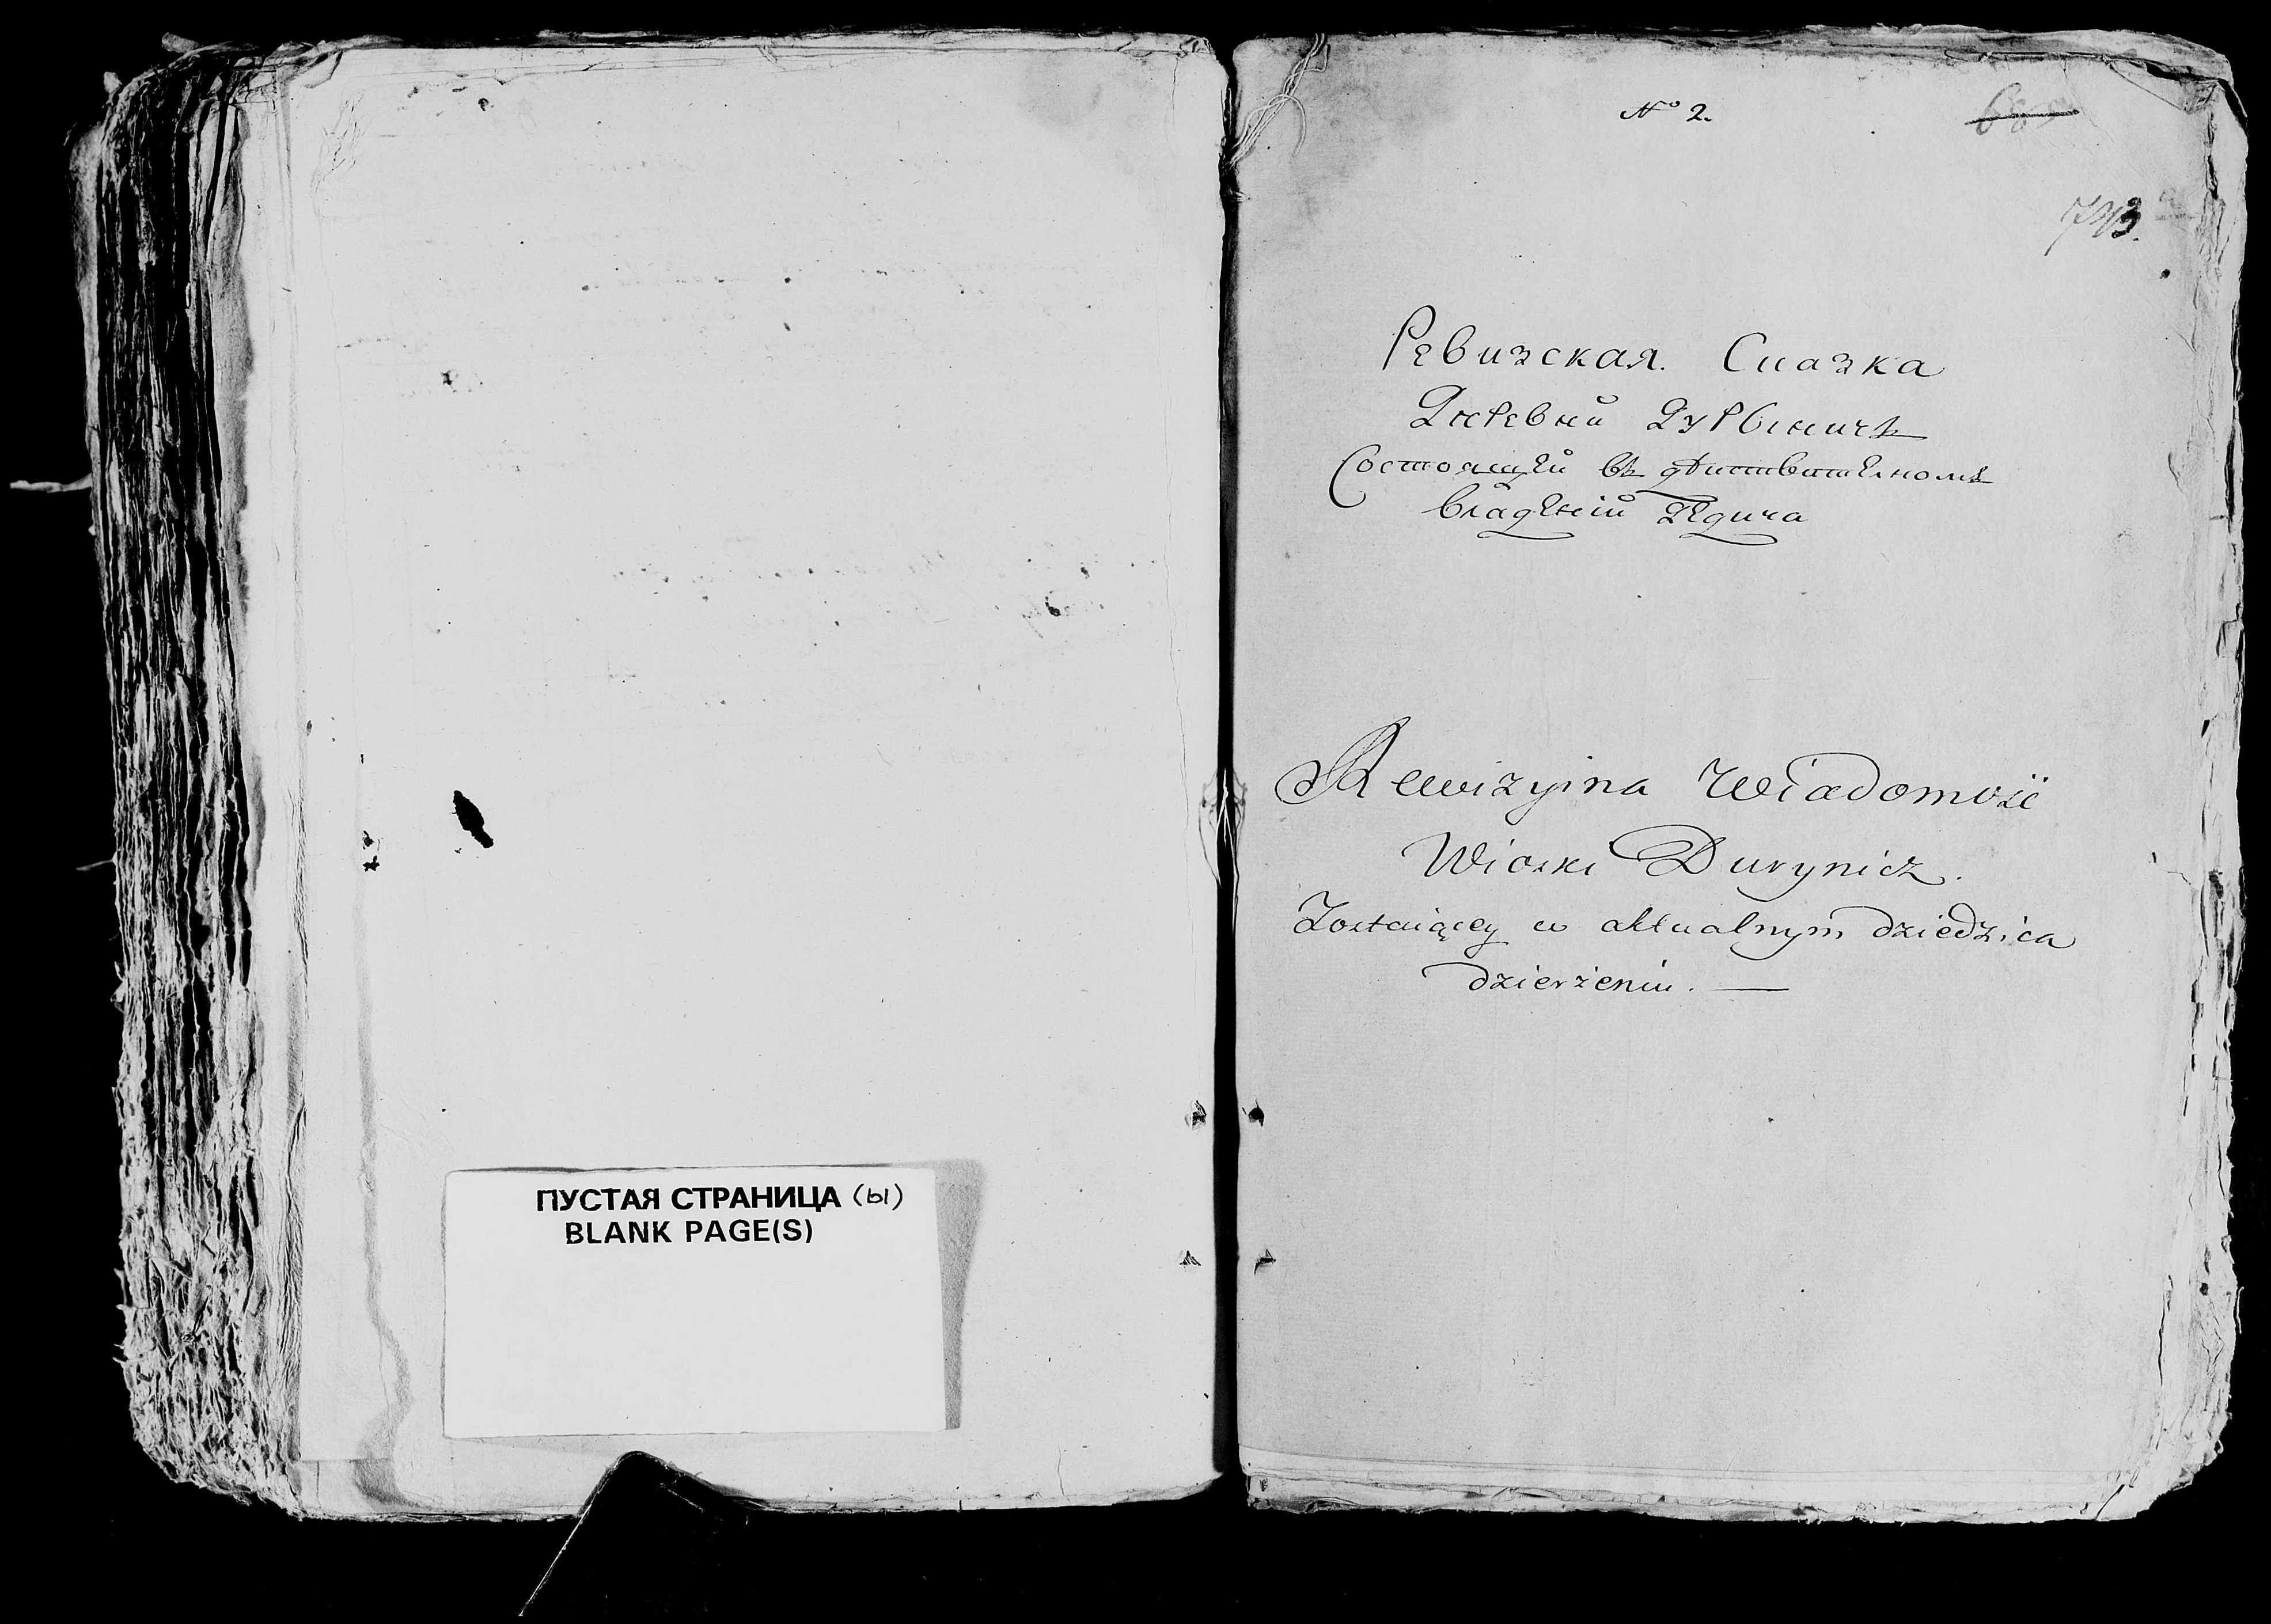 ПУСТАЯ СТРАНИЦА (ы)
BLANK PAGE(S)
№ 2.
743.
Ревизская Сказка
Деревни Дурыничъ
Состоящей въ
владѣній Дѣдича
Rewizyina Wiadomość
Wioski Durynicz.
Zostaiącey w aktualnym dziedzica
dzierżeniu. —